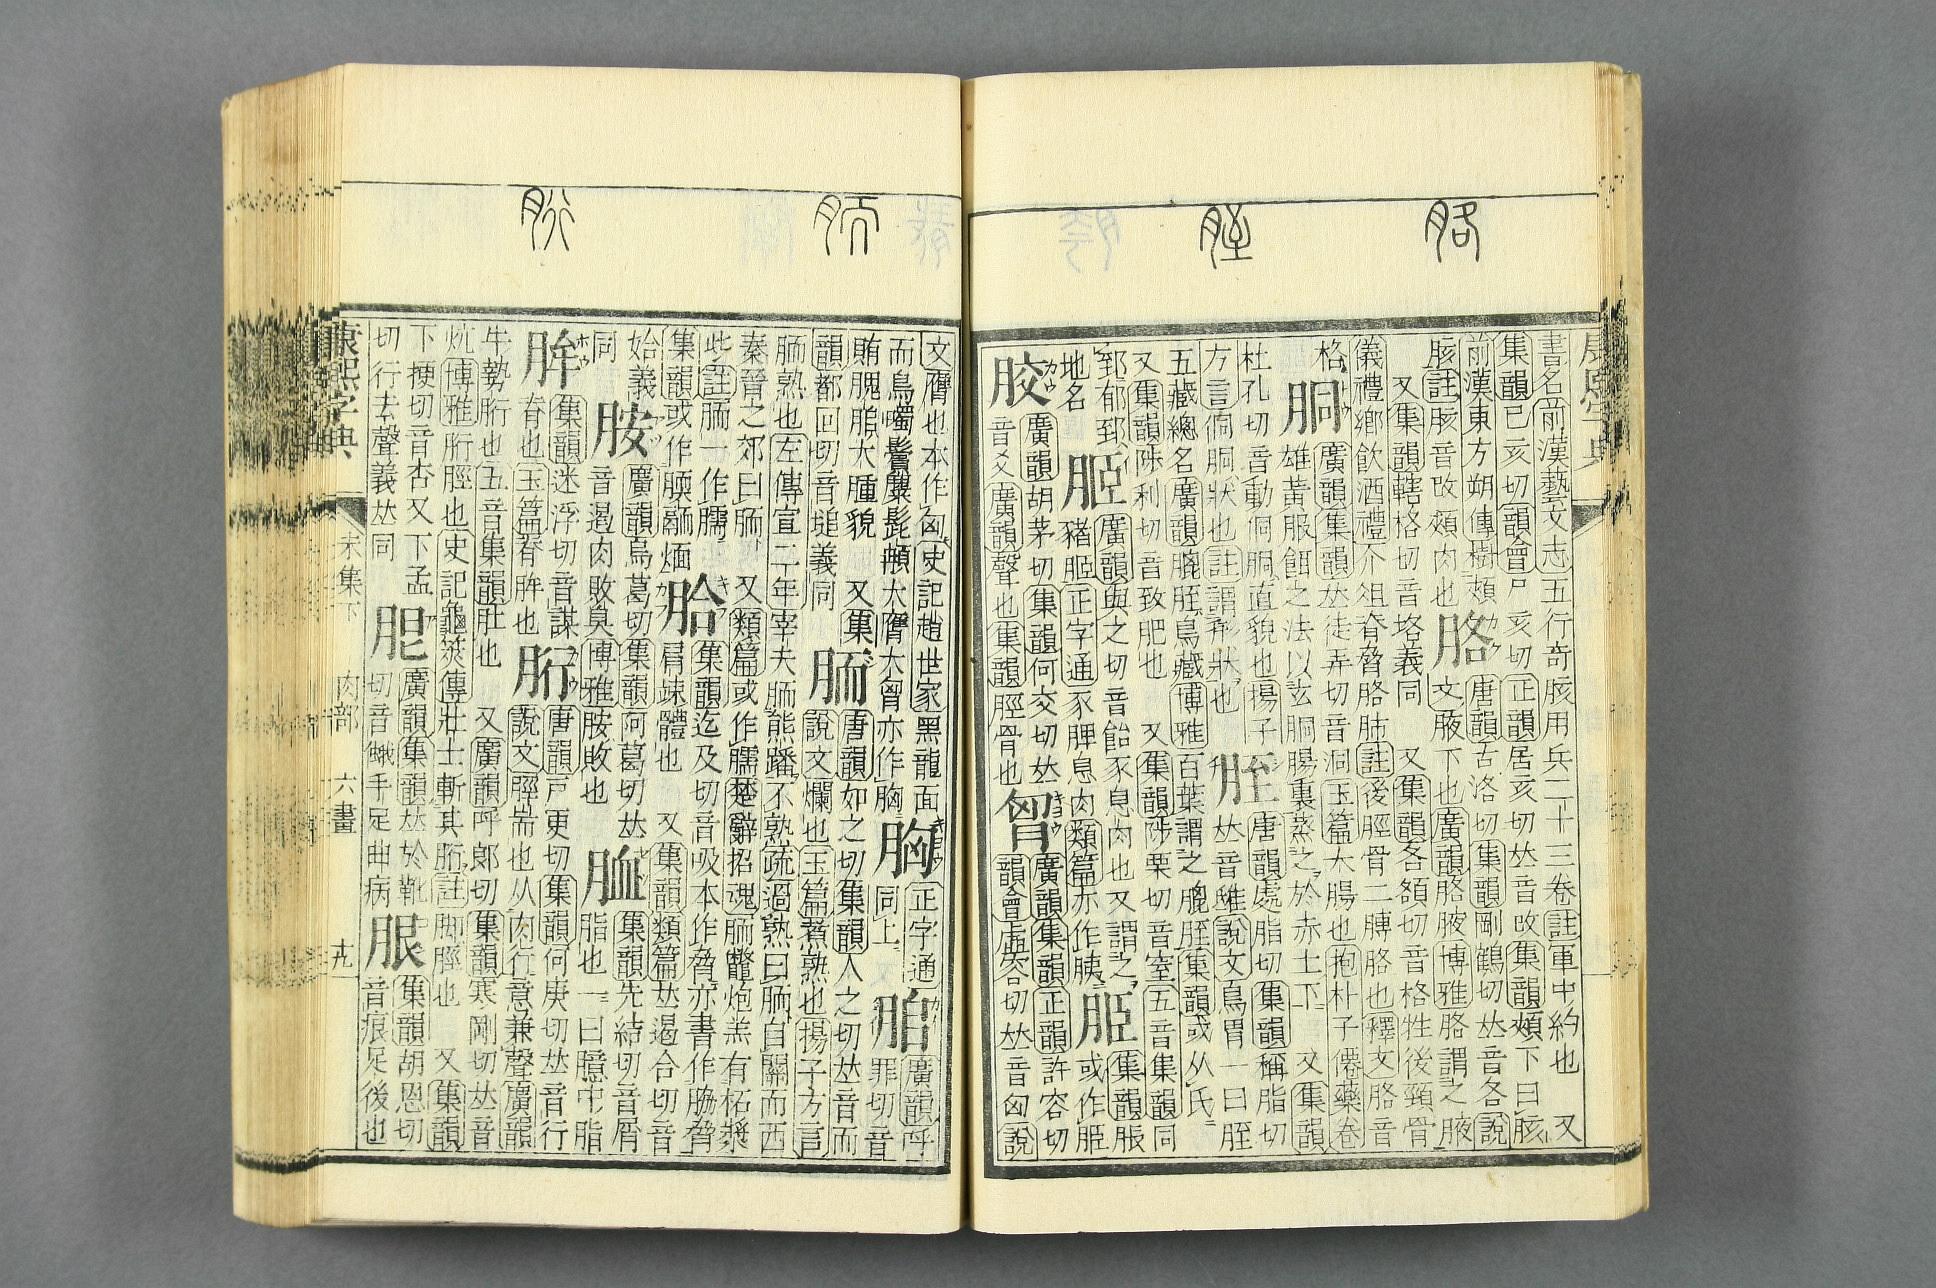 康熙字典
胳
胵
胹
書名前漢藝文志五行奇胲用兵二十三卷註軍中約也 又
集韻已亥切韻會尸亥切正韻居亥切𠀤音改集韻頰下曰胲
前漢東方朔傳樹頰
胲註胲音改頰肉也
胳
唐韻古洛切集韻剛鶴切𠀤音各說
文腋下也廣韻胳腋博雅胳謂之腋
又集韻轄格切音垎義同 又集韻各頟切音格牲後頸骨
儀禮鄉飲酒禮介俎脊脅胳肺註後脛骨二膞胳也釋文胳音
格
胴
廣韻集韻𠀤徒弄切音洞玉篇大腸也抱朴子僊藥卷
雄黃服餌之法以玄胴腸裹蒸之於赤土下 又集韻
杜孔切音動侗胴直貌也揚子
方言侗胴狀也註謂形狀也
胵
唐韻處脂切集韻稱脂切
𠀤音鴟說文鳥胃一曰胵
五藏總名廣韻膍胵鳥藏博雅百葉謂之膍胵集韻或从氏
又集韻陟利切音致肥也 又集韻陟栗切音窒五音集韻同
郅郁郅
地名
廣韻與之切音飴豕息肉也又謂之
正字通豕脾息肉類篇亦作胰
集韻脹
或作
胶
廣韻胡茅切集韻何交切𠀤
音爻廣韻聲也集韻脛骨也
胷
廣韻集韻正韻許容切
韻會虛容切𠀤音匈說
文膺也本作匈史記趙世家黑龍面
而鳥噣鬢麋髭髥大膺大胷亦作胸
胸
正字通
同上
廣韻呼
罪切音
賄腲 大腫貌 又集
韻都回切音 義同
胹
唐韻如之切集韻人之切𠀤音而
說文爛也玉篇煮熟也揚子方言
胹熟也左傳宣二年宰夫胹熊蹯不熟疏過熟曰胹自關而西
秦晉之郊曰胹 又類篇或作臑楚辭招魂胹鼈炮羔有柘漿
些註胹一作臑
集韻或作腝
䏩
集韻迄及切音吸本作脅亦書作脇脅
肩竦體也 又集韻類篇𠀤遏合切音
姶義
同
胺
廣韻烏葛切集韻阿葛切𠀤
音遏肉敗臭博雅胺敗也
䘏
集韻先結切音屑
脂也一曰臆中脂
脢
集韻迷浮切音謀
脊也玉篇脊脢也
胻
唐韻戸更切集韻何庚切𠀤音行
說文脛耑也从肉行意兼聲廣韻
牛勢胻也五音集韻肚也 又廣韻呼郎切集韻寒剛切𠀤音
炕博雅胻脛也史記龜筴傳壯士斬其胻註脚脛也 又集韻
下梗切音杏又下孟
切行去聲義𠀤同
廣韻集韻𠀤於靴
切音 手足曲病
䏰
集韻胡恩切
音痕足後也
康熙字典
未集下
肉部
六畫